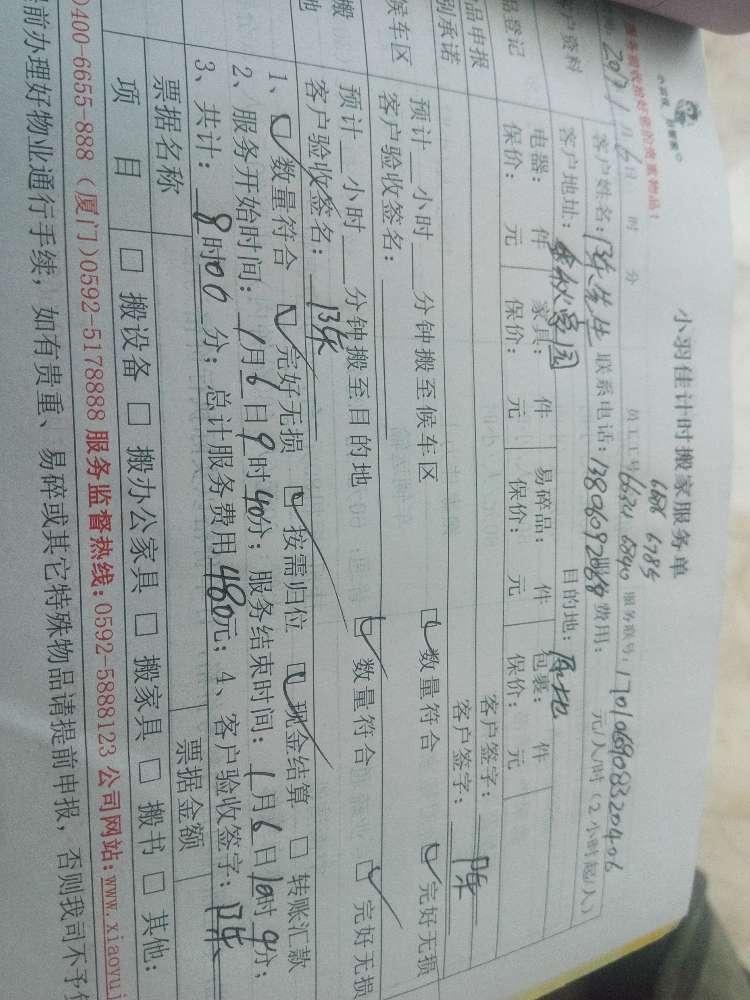 小羽佳计时搬家服务单
2017 1月6日 时 分
员工工号 6686 6785
服务账号: 17010690832040b
客户姓名: 联系电话: 费用: 元/人/时 (2小时起/人)
户资料 客户地址: 目的地: 原地
品登记 电器: 件 家具: 件 易碎品: 件 包裹: 件
品申报 保价: 元 保价: 元 保价: 元 保价: 元
别承诺 客户签字:
客户签字:
候车区 预计 小时 分钟搬至候车区 数量符合 完好无损
客户验收签名:
搬 预计 小时 分钟搬至目的地 数量符合 完好无损
地 客户验收签名:
1、 数量符合 完好无损 按需归位 现金结算 □ 转账汇款
2、服务开始时间: 1月6日9时40分; 服务结束时间: 1月6日 时 分;
3、共计: 8时00分; 总计服务费用480元; 4、客户验收签字:
票据名称 票据金额
项 目 □ 搬设备 □ 搬办公家具 □ 搬家具 □ 搬书 □ 其他:
0400-6655-888 (厦门)0592-5178888 服务监督热线: 0592-5888123 公司网站: www.xiaoyuj
前办理好物业通行手续, 如有贵重、易碎或其它特殊物品请提前申报, 否则我司不予